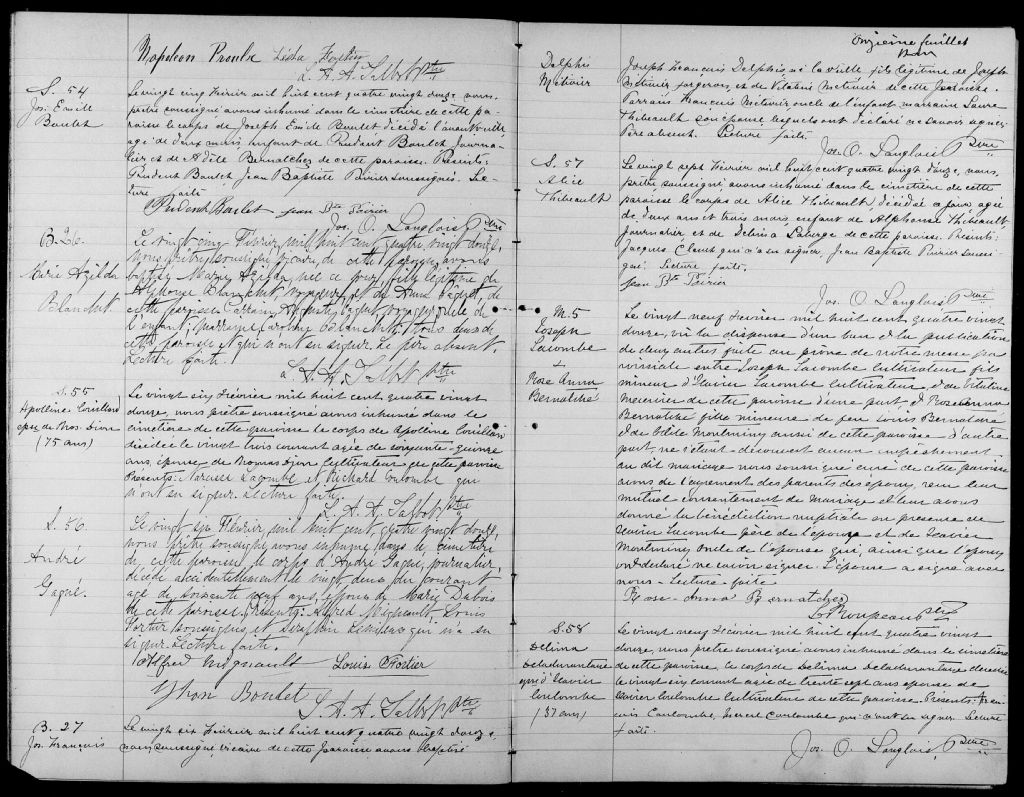 Napoleon Proulx Lédia Fortin
L. A. A. Talbot Ptre
S. 54
Jos. Emile
Boulet
Le vingt cinq Février mil huit cent quatre vingt douze nous
prêtre soussigné avons inhumé dans le cimetière de cette pa-
roisse le corps de Joseph Emile Boulet décédé l'avant veille
agé de deux mois enfant de Prudent Boulet Journa-
lier et de Adèle Bernatchez de cette paroisse. Présents:
Prudent Boulet, Jean Baptiste Poirier soussignés. Lec-
ture faite
Prudent Boulet Jean Bte Poirier
Jos. O. Langlois, Ptre
B. 26.
Marie Azilda
Blanchet
Le vingt cinq Février, mil huit cent quatre vingt douze,
nous prêtre soussigné vicaire de cette paroisse avons
baptisé Marie Azilda née ce jour, fille légitime de
Alphonse Blanchet, voyageur, et de Anna Paquet, de
cette paroisse. Parrain Auguste Paquet, oncle de
l'enfant; marraine Caroline Blanchet, tous deux de
cette paroisse et qui n'ont su signer. Le père absent.
Lecture faite.
L. A. A. Talbot Ptre
S. 55
Apolline Couillard
épse de Thos. Dion
(75 ans)
Le vingt six Février mil huit cent quatre vingt
douze, nous prêtre soussigné avons inhumé dans le
cimetière de cette paroisse le corps de Apolline Couillard
décédée le vingt trois courant agée de soixante-quinze
ans, épouse de Thomas Dion Cultivateur de cette paroisse
Présents: Narcisse Lacombe et Richard Coulombe qui
n'ont su signer. Lecture faite.
L. A. A. Talbot Ptre
S. 56.
André
Gagné.
Le vingt six Février, mil huit cent, quatre vingt douze,
nous prêtre soussigné avons inhumé dans le cimetière
de cette paroisse le corps d'André Gagné, journalier,
décédé accidentellement le vingt deux du courant
agé de soixante ans, époux de Marie Dubois
de cette paroisse. Présents: Alfred Migneault, Louis
Fortier soussignés, et Séraphin qui n'a su
signer. Lecture faite.
Alfred Migneault Louis Fortier
Yhon Boulet
L. A. A. Talbot Ptre
B. 27
Jos. François
Le vingt six Février mil huit cent quatre vingt douze
nous soussigné, vicaire de cette paroisse avons baptisé
Onzième feuillet
Delphis
Métivier
Joseph François Delphis, né la veille fils légitime de Joseph
Métivier forgeron, et de Métivier de cette paroisse.
Parrain François Métivier oncle de l'enfant marraine Laure
Thibeault son épouse lesquels ont déclaré ne savoir signer.
Père absent. Lecture faite
Jos. O. Langlois Ptre
S. 57
Alice
Thibeault
Le vingt sept Février mil huit cent quatre vingt douze, nous,
prêtre soussigné, avons inhumé dans le cimetière de cette
paroisse le corps de Alice Thibeault, décédée agée
de deux ans et trois mois enfant de Alphonse Thibeault,
Journalier et de Délima Laberge de cette paroisse. Présents:
Jacques qui n'a su signer, Jean Baptiste Poirier soussi-
gné. Lecture faite.
Jean Bte Poirier
Jos. O. Langlois, Ptre
M. 5
Joseph
Lacombe
+
Rose Anna
Bernatché
Le vingt neuf Février mil huit cent quatre vingt
douze, vu la dispense d'un ban et la publication
de deux autres faite au prône de notre messe pa
roissiale entre Joseph Lacombe Cultivateur fils
mineur d'Xavier Lacombe Cultivateur, & de
Meunier de cette paroisse d'une part, & Rose Anna
Bernatché fille mineure de feu Louis Bernatché
& de Montminy aussi de cette paroisse d'autre
part, ne s'étant découvert aucun empêchement
au dit mariage nous soussigné curé de cette paroisse
avons de l'agrément des parents des époux, reçu leur
mutuel consentement de mariage et leur avons
donné la bénédiction nuptiale en présence de
Xavier Lacombe père de l'époux et de Xavier
Montminy oncle de l'épouse qui, ainsi que l'époux
ont déclaré ne savoir signer. L'épouse a signé avec
nous - Lecture faite
Rose-Anna Bernatchez
Ptre
S. 58
Délima
Deladurantaye
épse d'Xavier
Coulombe
(37 ans)
Le vingt neuf Février mil huit cent quatre vingt
douze, nous prêtre soussigné avons inhumé dans le cimetière
de cette paroisse, le corps de Délima Deladurantaye décédée
le vingt six courant agée de trente sept ans épouse de
Xavier Coulombe Cultivateur de cette paroisse. Présents: Fran-
çois Coulombe, Coulombe qui n'ont su signer. Lecture
faite.
Jos. O. Langlois, Ptre